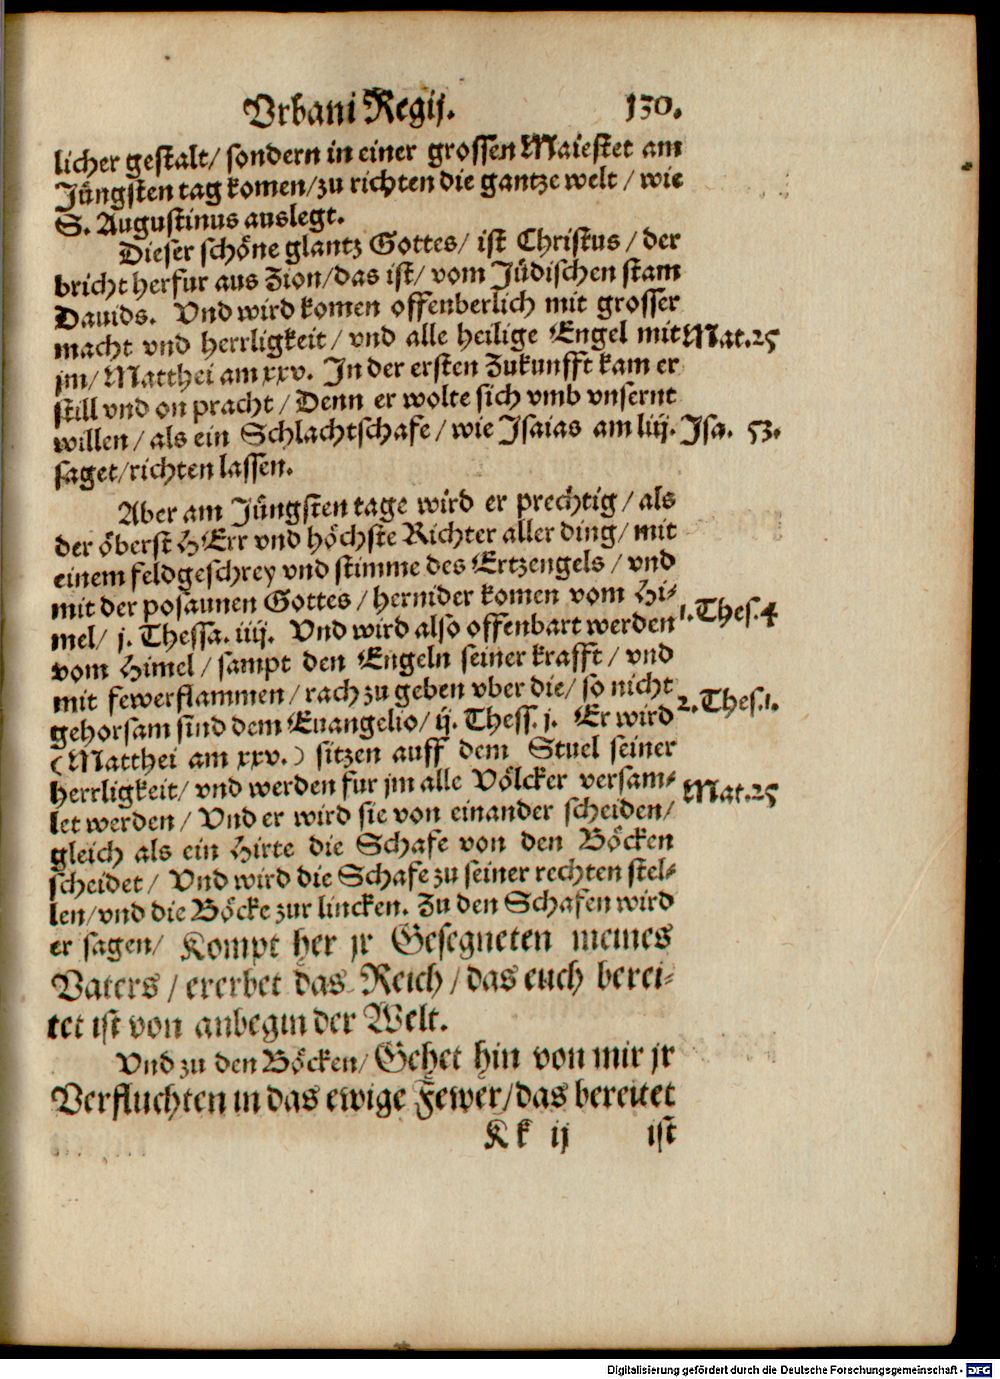 Vrbani Regij. 130.
licher gestalt/ sondern in einer grossen Maiestet am
Jüngsten tag komen/zu richten die gantze welt / wie
S. Augustinus auslegt.
Dieser schöne glantz Gottes/ ist Christus / der
bricht herfur aus Zion/das ist/ vom Jüdischen stam
Dauids. Vnd wird komen offenberlich mit grosser
macht vnd herrligkeit / vnd alle heilige Engel mit Mat.25
jm/ Matthei am xxv. In der ersten Zukunfft kam er
still vnd on pracht / Denn er wolte sich vmb vnsernt
willen / als ein Schlachtschafe / wie Isaias am liij. Isa. 53.
saget/richten lassen.
Aber am Jüngsten tage wird er prechtig / als
der öberst HErr vnd höchste Richter aller ding/ mit
einem feldgeschrey vnd stimme des Ertzengels / vnd
mit der posaunen Gottes / hernider komen vom Hi-
mel/ j. Thessa. iiij. Vnd wird also offenbart werden 1. Thes. 4
vom Himel / sampt den Engeln seiner krafft / vnd
mit fewerflammen / rach zu geben vber die/ so nicht
gehorsam sind dem Euangelio/ ij. Thess. j. Er wird 2. Thes. 1.
(Matthei am xxv.) sitzen auff dem Stuel seiner
herrligkeit/ vnd werden fur jm alle Völcker versam-
let werden / Vnd er wird sie von einander scheiden/ Mat.25
gleich als ein Hirte die Schafe von den Böcken
scheidet / Vnd wird die Schafe zu seiner rechten stel-
len/vnd die Böcke zur lincken. Zu den Schafen wird
er sagen/ Kompt her jr Gesegneten meines
Vaters / ererbet das Reich / das euch berei-
tet ist von anbegin der Welt.
Vnd zu den Böcken/ Gehet hin von mir jr
Verfluchten in das ewige Fewer/das bereitet
Kk ij ist
Digitalisierung gefördert durch die Deutsche Forschungsgemeinschaft - DFG